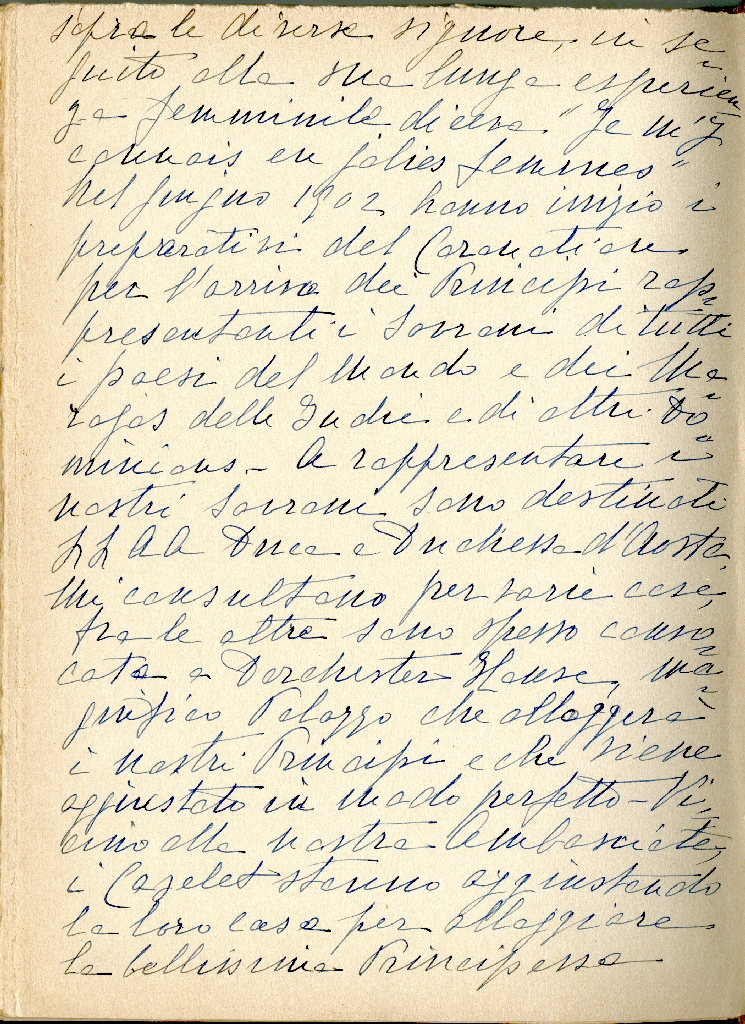 sopra le diverse signore, in se-
guito alla sua lunga esperien
za femminile diceva "Je m'y
connais en jolies femmes"
Nel giugno 1902 hanno inizio i
preparativi del Coronation
per l'arrivo dei Principi rap-
presentanti i Sovrani di tutti
i paesi del Mondo e dei Ma-
rajas delle Indie e di altri Do-
minions - A rappresentare i
nostri Sovrani sono destinati
LL AA Duca e Duchessa d'Aosta.
Mi consultano per varie cose,
tra le altre sono spesso convo-
cata a Dorchester House, ma-
gnifico Palazzo che alloggerà
i nostri Principi e che viene
aggiustato in modo perfetto - Vi-
cino alla nostra Ambasciata,
i Cazelet stanno aggiustando
la loro casa per alloggiare
la bellissima Principessa